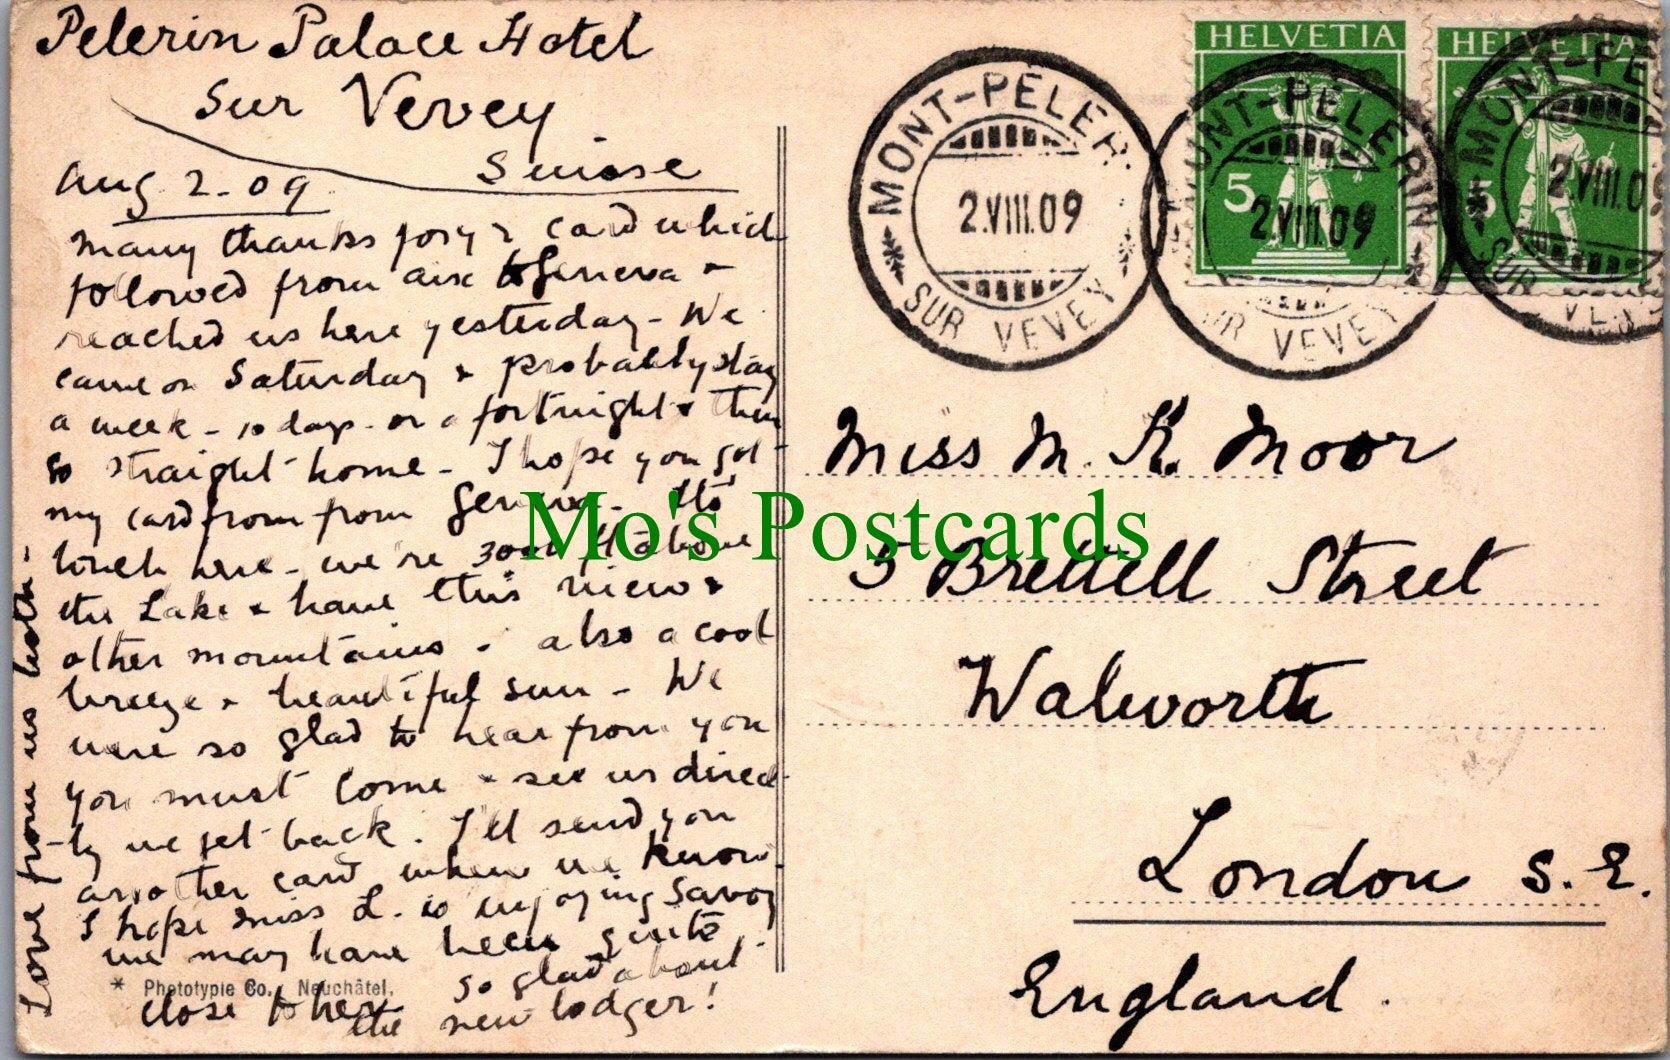 Pelerin Palace Hotel
sur Vevey
Suisse
Aug 2 - 09
many thanks for yr card which
followed from aix to Geneva &
reached us here yesterday - We
came on Saturday & probably stay
a week - 10 days - or a fortnight & then
so straight home - I hope you got
my card from from Geneva -
here - we're 3000 ft above
the Lake & have this view &
other mountains - also a cool
breeze & beautiful sun - We
were so glad to hear from you
you must come & see us direct-
ly we get back. I'll send you
another card when we know
I hope Miss L. is enjoying Savoy
we may have been quite
close to her
so glad about
the new lodger!
Love from us both -
* Phototypie Co., Neuchâtel.
HELVETIA
5
HELVETIA
5
MONT-PÉLER
2.VIII.09
SUR VEVEY
MONT-PÉLERIN
2.VIII.09
SUR VEVEY
MONT-PÉ
2.VIII.0
SUR VEV
Miss M. K. Moor
5 Brettell Street
Walworth
London S.E.
England.
Mo's Postcards